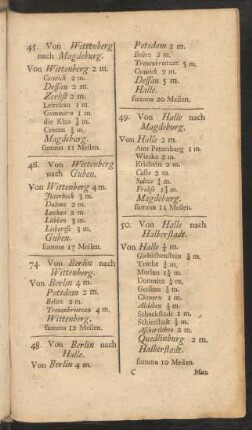 45. Von Wittenberg
nach Magdeburg.
Von Wittenberg 2 m.
Coswick 2 m.
Dessau 2 m.
Zerbst 2 m.
Leitzkau 1 m.
Gummern 1 m.
die Klus ½ m.
Cracau ½ m.
Magdeburg.
summa 11 Meilen.
46. Von Wittenberg
nach Guben.
Von Wittenberg 4 m.
Jüterbock 3 m.
Dahme 2 m.
Luckau 2 m.
Lübben 3 m.
Lieberose 3 m.
Guben.
summa 17 Meilen.
74. Von Berlin nach
Wittenberg.
Von Berlin 4 m.
Potsdam 2 m.
Belitz 2 m.
Treuenbrietzen 4 m.
Wittenberg.
summa 12 Meilen.
48. Von Berlin nach
Halle.
Von Berlin 4 m.
Potsdam 2 m.
Belitz 2 m.
Treuenbrietzen 5 m.
Coswick 2 m.
Dessau 5 m.
Halle.
summa 20 Meilen.
49. Von Halle nach
Magdeburg.
Von Halle 2 m.
Amt Petersberg 1 m.
Calbe 2 m.
Magdeburg.
summa 11 Meilen.
50. Von Halle nach
Halberstadt.
Von Halle ½ m.
Giebichenstein ½ m.
Domnitz ½ m.
Connern 1 m.
Alsleben ½ m.
Schackstädt 1 m.
Schierstädt
Aschersleben 2 m.
Quedlinburg 2 m.
Halberstadt.
summa 10 Meilen.
C